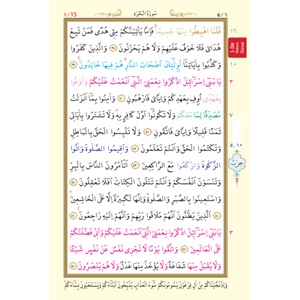 سُورَةُ الْبَقَرَةِ
قُلْنَا اهْبِطُوا مِنْهَا جَمِيعًا فَإِمَّا يَأْتِيَنَّكُمْ مِنِّي هُدًى فَمَنْ تَبِعَ
هُدَايَ فَلَا خَوْفٌ عَلَيْهِمْ وَلَا هُمْ يَحْزَنُونَ وَالَّذِينَ كَفَرُوا
وَكَذَّبُوا بِآيَاتِنَا أُولَٰئِكَ أَصْحَابُ النَّارِ هُمْ فِيهَا خَالِدُونَ
يَا بَنِي إِسْرَائِيلَ اذْكُرُوا نِعْمَتِيَ الَّتِي أَنْعَمْتُ عَلَيْكُمْ وَأَوْفُوا
بِعَهْدِي أُوفِ بِعَهْدِكُمْ وَإِيَّايَ فَارْهَبُونِ وَآمِنُوا بِمَا أَنْزَلْتُ
مُصَدِّقًا لِمَا مَعَكُمْ وَلَا تَكُونُوا أَوَّلَ كَافِرٍ بِهِ وَلَا تَشْتَرُوا بِآيَاتِي
ثَمَنًا قَلِيلًا وَإِيَّايَ فَاتَّقُونِ وَلَا تَلْبِسُوا الْحَقَّ بِالْبَاطِلِ
وَتَكْتُمُوا الْحَقَّ وَأَنْتُمْ تَعْلَمُونَ وَأَقِيمُوا الصَّلَوٰةَ وَآتُوا
الزَّكَوٰةَ وَارْكَعُوا مَعَ الرَّاكِعِينَ أَتَأْمُرُونَ النَّاسَ بِالْبِرِّ
وَتَنْسَوْنَ أَنْفُسَكُمْ وَأَنْتُمْ تَتْلُونَ الْكِتَابَ أَفَلَا تَعْقِلُونَ
وَاسْتَعِينُوا بِالصَّبْرِ وَالصَّلَوٰةِ وَإِنَّهَا لَكَبِيرَةٌ إِلَّا عَلَى الْخَاشِعِينَ
الَّذِينَ يَظُنُّونَ أَنَّهُمْ مُلَاقُوا رَبِّهِمْ وَأَنَّهُمْ إِلَيْهِ رَاجِعُونَ
يَا بَنِي إِسْرَائِيلَ اذْكُرُوا نِعْمَتِيَ الَّتِي أَنْعَمْتُ عَلَيْكُمْ وَأَنِّي فَضَّلْتُكُمْ
عَلَى الْعَالَمِينَ وَاتَّقُوا يَوْمًا لَا تَجْزِي نَفْسٌ عَنْ نَفْسٍ شَيْئًا
وَلَا يُقْبَلُ مِنْهَا شَفَاعَةٌ وَلَا يُؤْخَذُ مِنْهَا عَدْلٌ وَلَا هُمْ يُنْصَرُونَ